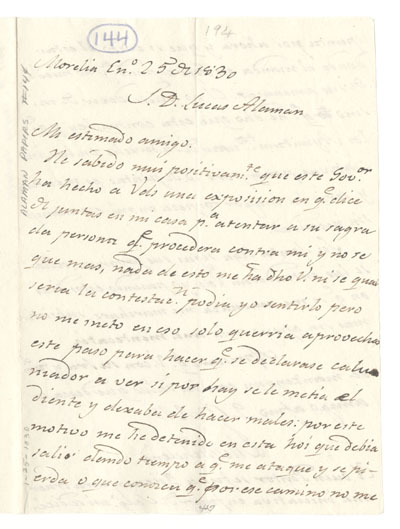 144
194
Morelia En.o 25 de 1830
S. D. Lucas Alaman
Mi estimado amigo.
He sabido mui positivam.te que este Gov.or
ha hecho a Vds una exposision en q.e dice
de juntas en mi casa p.a atentar a su sagra
da persona q.e procedera contra mi y no se
que mas, nada de esto me ha dho V. ni se qual
seria la contestac.n podia yo sentirlo pero
no me meto en eso solo querria aprovechar
este paso para hacer q.e se declarase calum
niador a ver si por hay se le metia el
diente y dexaba de hacer males: por este
motivo me he detenido en esta hoi que debia
salir dando tiempo a q.e me ataque y se pi
erda o que conosca q.e por ese camino no me
ALAMAN PAPERS #144
1-25-1830